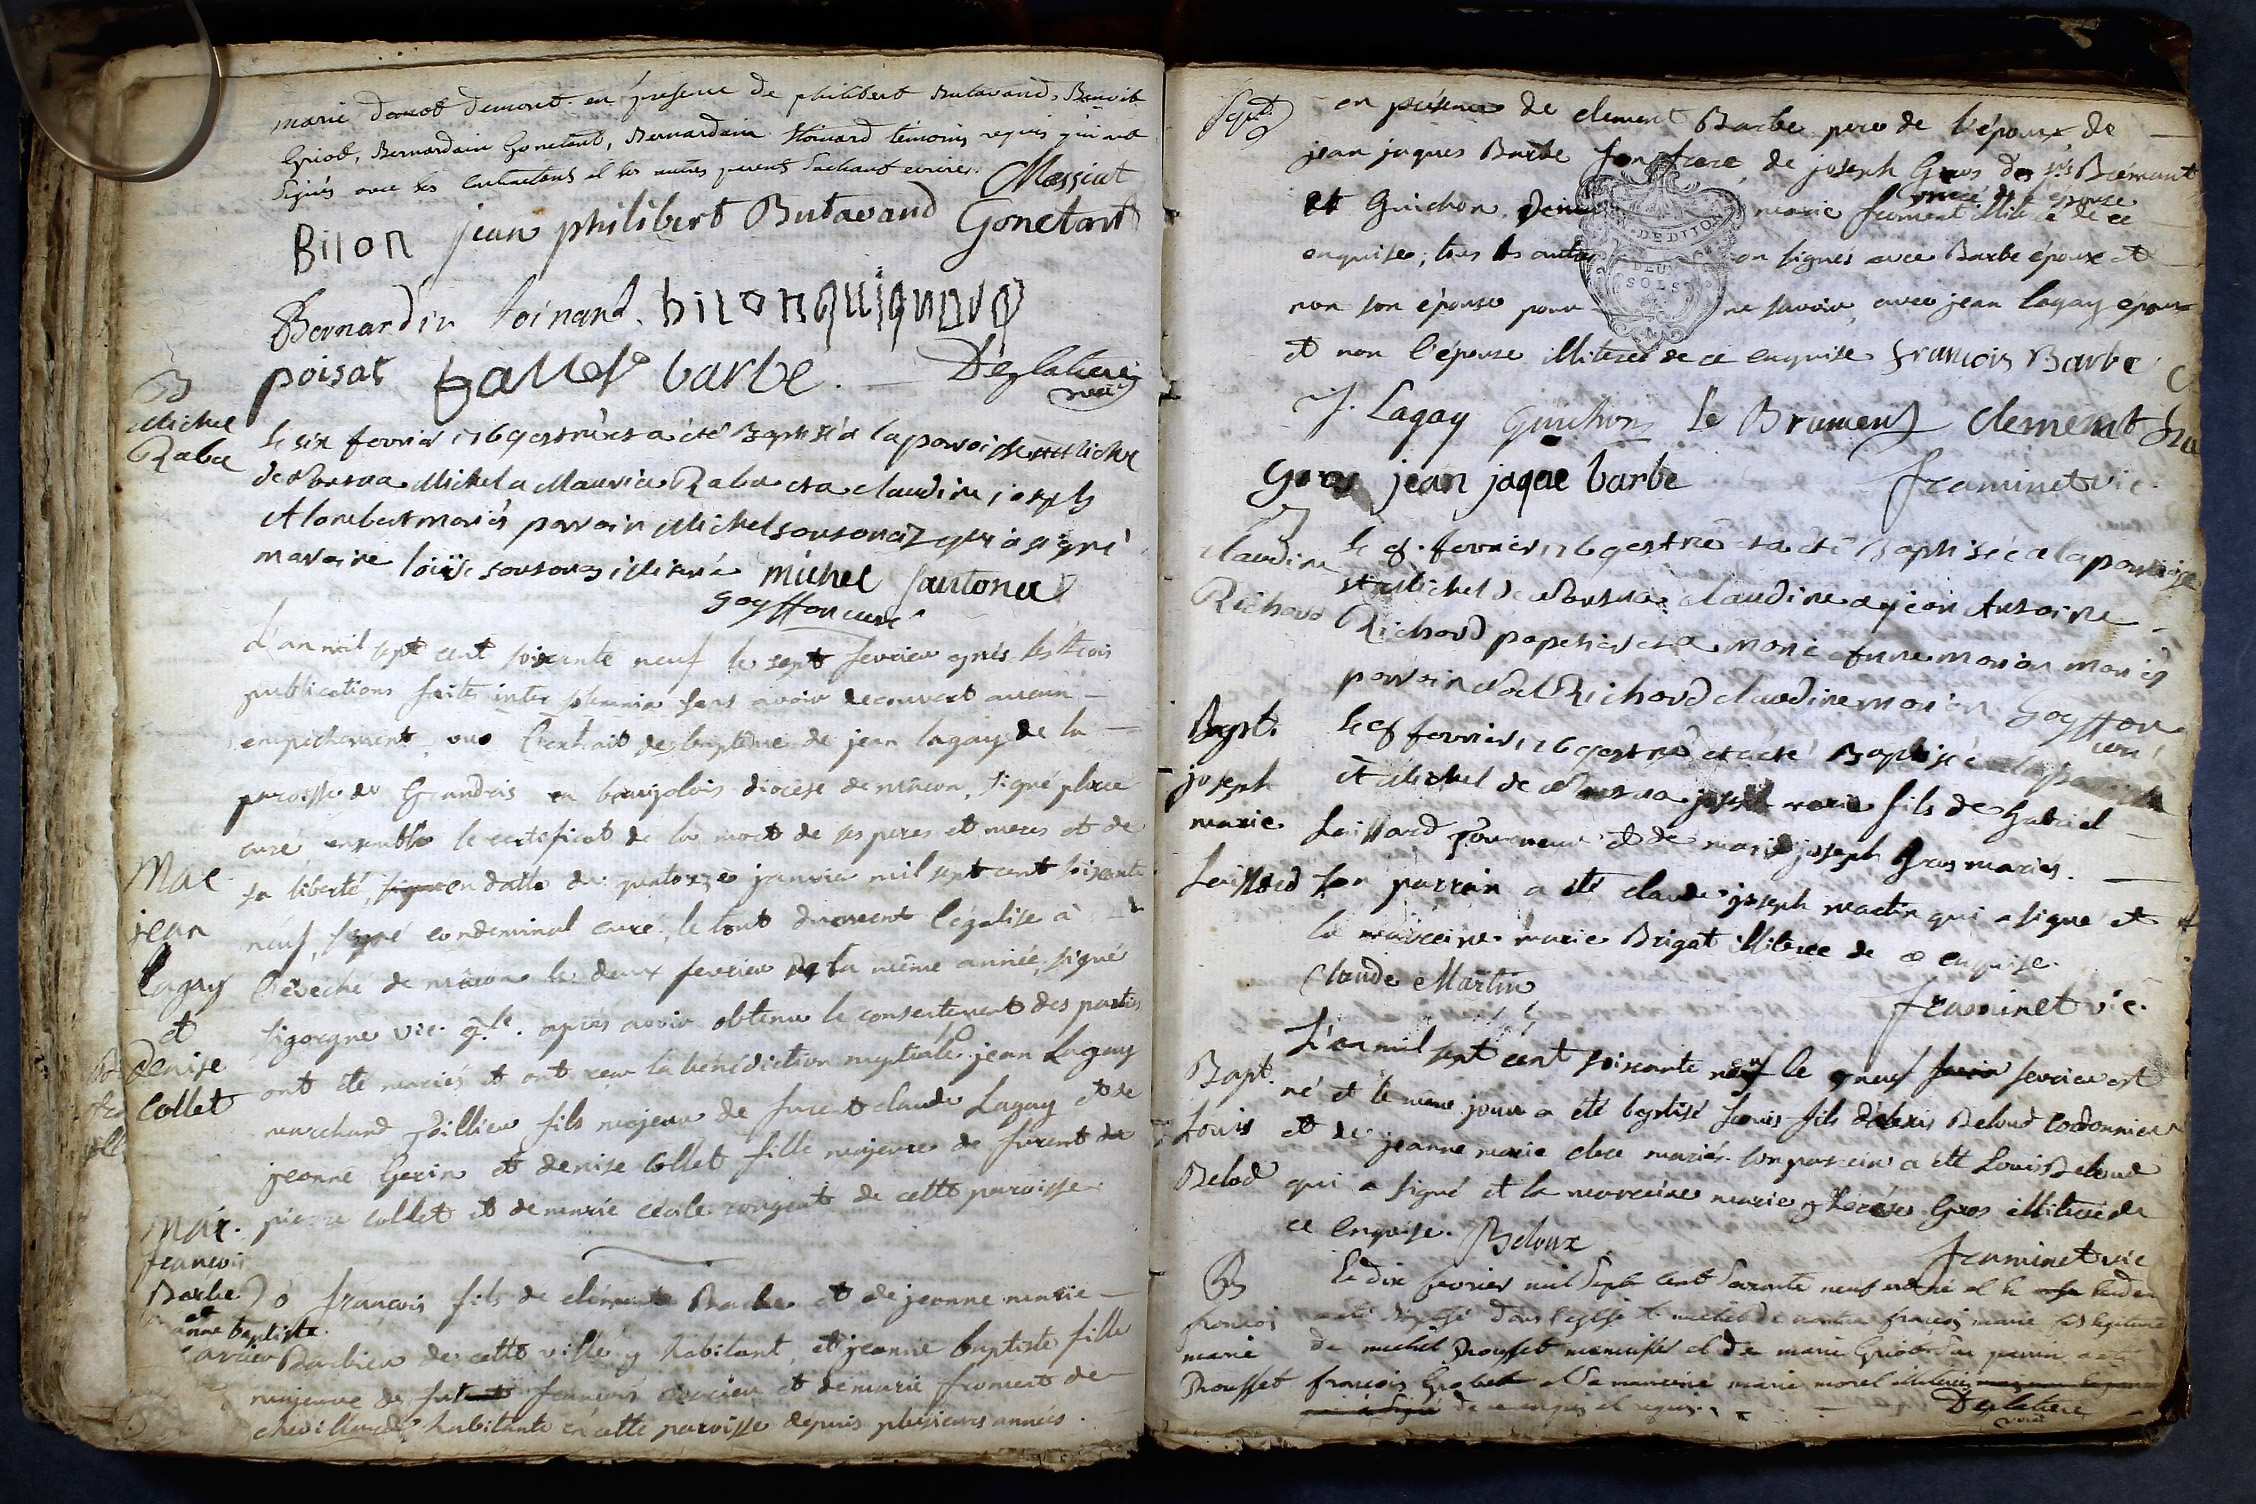 marie demont en présence de philibert Butavand, Benoit
Griod, Bernardain Gonetant, Bernardain témoins requis qui ont
signés avec les contractans et les autres parents sachant ecrire. Messiat
Bilon jean philibert Butavand Gonetant
Bernardin toinard
poisat barbe. Deglatiere
vicre
B
Michel
Raba
le six fevrier 1769 est né et a été Baptisé a la paroisse st Michel
de Nantua Michel a Mauris Raba et a claudine joseph
et lambert mariés parrain Michel sonsonaz qui a signé
marraine loüise sonsonaz illiterée michel santona
goyffon curé
L'an mil sept cent soixante neuf le sept fevrier après les trois
publications faites inter solemnia sans avoir decouvert aucun
empechement, vus l'extrait de baptême de jean lagay de la
paroisse de Grandris en baujolois diocèse de mâcon, signé place
curé ensemble le certificat de la mort de ses peres et meres et de
sa liberté, en datte du quatorze janvier mil sept cent soixante
neuf, signé condeminal curé, le tout duement légalisé à
l'évêché de mâcon le deux fevrier de la même année, signé
sigorgne vic. gle. après avoir obtenu le consentement des parties
ont été mariés et ont reçu la bénédiction nuptiale. jean Lagay
marchand fils majeur de furent claude Lagay et de
jeanne Gerin et denise Collet fille majeure de furent de
pierre collet et de marie cécile rongeat de cette paroisse
Mar.
jean
Lagay
et
denise
Collet
Mar.
françois
Barbe
et
anne baptiste
carrier
D'o françois fils de clément Barbe et de jeanne marie
Barbier de cette ville y habitant, et jeanne baptiste fille
majeure de fut françois carrier et de marie froment de
chevillard habitante en cette paroisse depuis plusieurs années.
Sept
en présence de clement Barbe pere de l'époux de
jean jaques Barbe son frere, de joseph Gros des srs Brémant
et Guichon, marie froment mere de l'épouse illiterée de ce
enquise; tous les autres on signés avec Barbe époux et
non son épouse pour ne savoir, avec jean lagay epoux
et non l'épouse illiterée de ce enquise françois Barbe
J. Lagay Guichon le Brument clement
gros jean jaque barbe framinet vic.
B
claudine
Richard
le 8. fevrier 1769 est née et a été Baptisée a la paroisse
st Michel de Nantua claudine a jean Antoine
Richard papetier et a marie Anne marion mariés
parrain Noel Richard claudine marion Goyffon
curé
Bapt.
joseph
marie
Laissard
le 8 fevrier 1769 est né et a été Baptisé
st Michel de Nantua joseph marie fils de Gabriel
Laissard et de marie joseph Gros mariés.
son parrain a été claude joseph martin qui a signé et
la marreine marie Brigat illiterée de ce enquise.
Claude Martin framinet vic.
Bapt.
Louis
Belod
L'an mil sept cent soixante neuf le neuf fevrier est
né et le même jour a été baptisé Louis fils d'alexis Beloud cordonnier
et de jeanne marie mariés. son parrein a été Louis Beloud
qui a signé et la marreine marie therèse Gros illiterée de
ce enquise. Beloux framinet vic
B
francois
marie
Drousset
le dix fevrier mil sept cent soixante neuf est né et le
a été baptisé dans l'eglise st michel de nantua françois marie fils legitime
de michel Drousset menuisier et de marie Griod. Son parrin a été
françois Grobet et sa marreine marie morel illiterée
de ce enquis et requis. Deglatiere
vicre